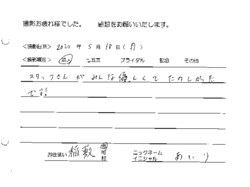 撮影お疲れ様でした。 感想をお願いいたします。
<撮影日> 2020年 5月 18日(月)
<撮影項目> 七五三 ブライダル 記念 その他
スタッフさんがみんな優しくてたのしかった
です!
お住まい 稲敷 市 ニックネーム
イニシャル あいり